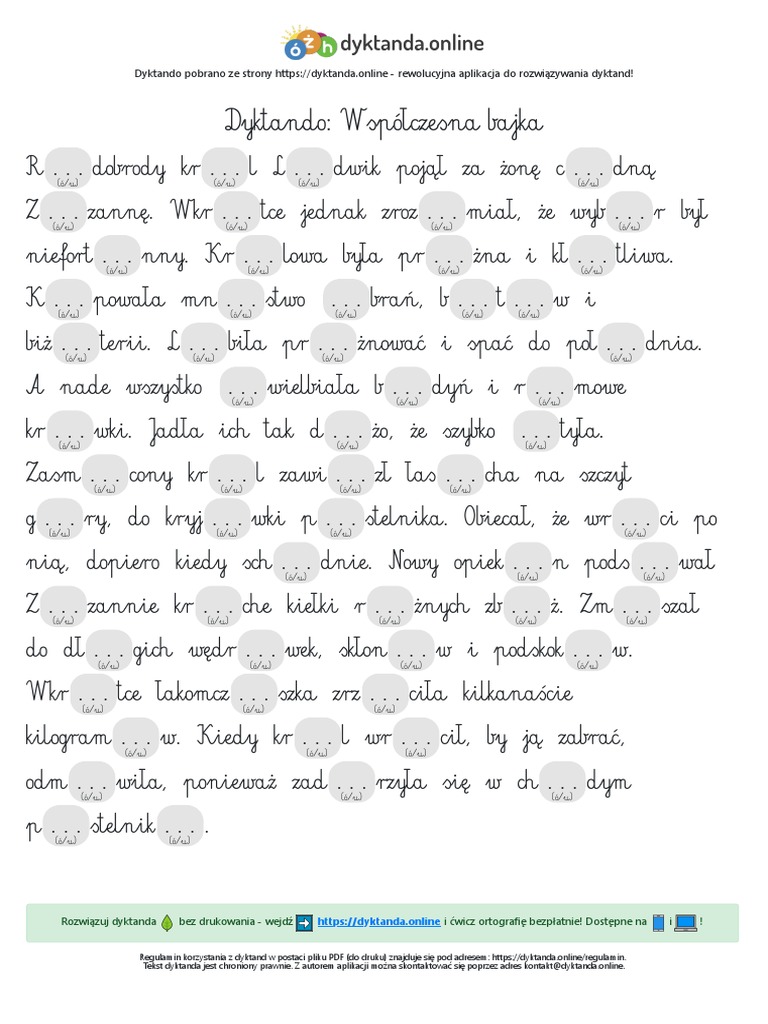 ó ż h dyktanda.online
Dyktando pobrano ze strony https://dyktanda.online - rewolucyjna aplikacja do rozwiązywania dyktand!
Dyktando: Współczesna bajka
R...(ó/u)dobrody kr...(ó/u)l L...(ó/u)dwik pojął za żonę c...(ó/u)dną
Z...(ó/u)zannę. Wkr...(ó/u)tce jednak zroz...(ó/u)miał, że wyb...(ó/u)r był
niefort...(ó/u)nny. Kr...(ó/u)lowa była pr...(ó/u)żna i kł...(ó/u)tliwa.
K...(ó/u)powała mn...(ó/u)stwo ...(ó/u)brań, b...(ó/u)t...(ó/u)w i
biż...(ó/u)terii. L...(ó/u)biła pr...(ó/u)żnować i spać do poł...(ó/u)dnia.
A nade wszystko ...(ó/u)wielbiała b...(ó/u)dyń i r...(ó/u)mowe
kr...(ó/u)wki. Jadła ich tak d...(ó/u)żo, że szybko ...(ó/u)tyła.
Zasm...(ó/u)cony kr...(ó/u)l zawi...(ó/u)zł łas...(ó/u)cha na szczyt
g...(ó/u)ry, do kryj...(ó/u)wki p...(ó/u)stelnika. Obiecał, że wr...(ó/u)ci po
nią, dopiero kiedy sch...(ó/u)dnie. Nowy opiek...(ó/u)n pods...(ó/u)wał
Z...(ó/u)zannie kr...(ó/u)che kiełki r...(ó/u)żnych zb...(ó/u)ż. Zm...(ó/u)szał
do dł...(ó/u)gich wędr...(ó/u)wek, skłon...(ó/u)w i podskok...(ó/u)w.
Wkr...(ó/u)tce łakomcz...(ó/u)szka zrz...(ó/u)ciła kilkanaście
kilogram...(ó/u)w. Kiedy kr...(ó/u)l wr...(ó/u)cił, by ją zabrać,
odm...(ó/u)wiła, ponieważ zad...(ó/u)rzyła się w ch...(ó/u)dym
p...(ó/u)stelnik...(ó/u).
Rozwiązuj dyktanda bez drukowania - wejdź https://dyktanda.online i ćwicz ortografię bezpłatnie! Dostępne na i !
Regulamin korzystania z dyktand w postaci pliku PDF (do druku) znajduje się pod adresem: https://dyktanda.online/regulamin.
Tekst dyktanda jest chroniony prawnie. Z autorem aplikacji można skontaktować się poprzez adres kontakt@dyktanda.online.